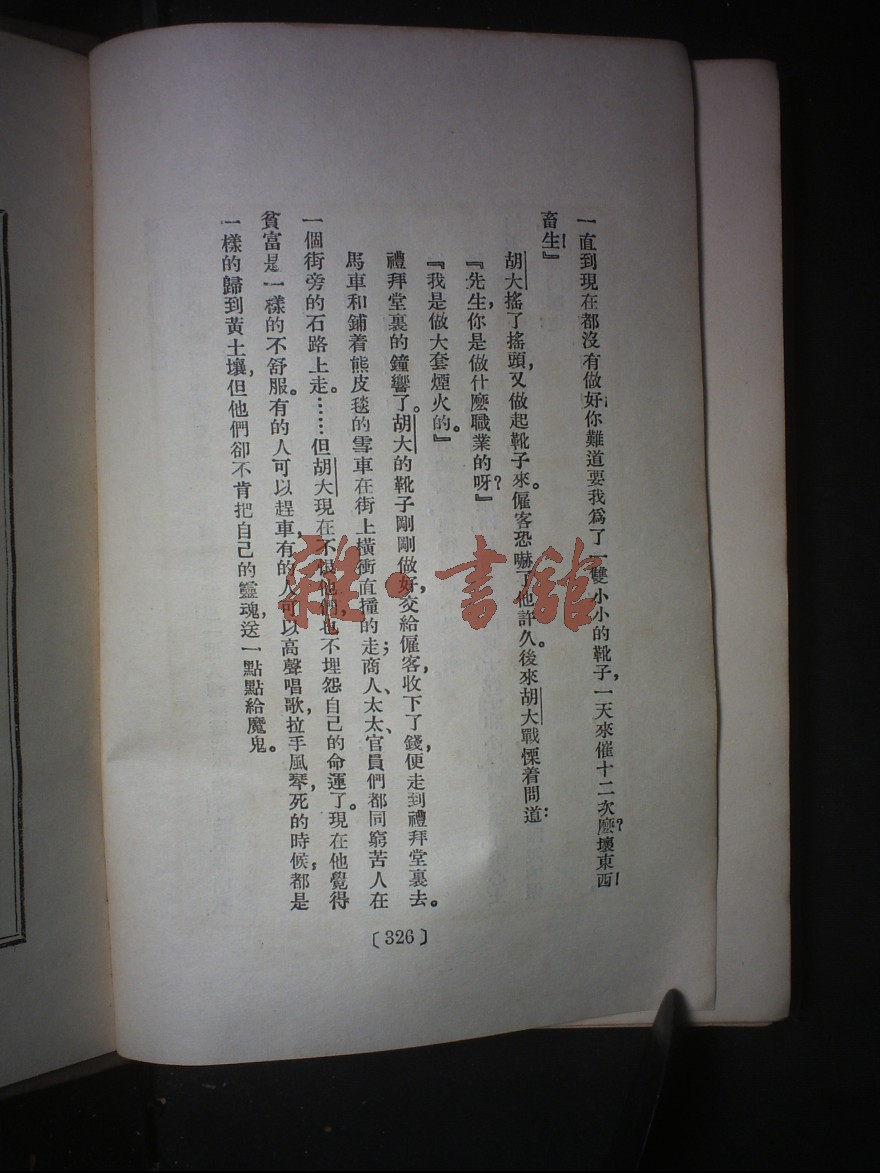 一直到現在都沒有做好!你難道要我爲了一雙小小的靴子,一天來催十二次麽?壞東西!
畜生!』
胡大搖了搖頭,又做起靴子來。僱客恐嚇了他許久。後來胡大戰慄着問道:
『先生,你是做什麽職業的呀?』
『我是做大套煙火的。』
禮拜堂裏的鐘響了。胡大的靴子剛剛做好,交給僱客,收下了錢,便走到禮拜堂裏去。
馬車和鋪着熊皮毯的雪車在街上橫衝直撞的走;商人、太太、官員們都同窮苦人在
一個街旁的石路上走。……但胡大現在不恨他們,也不埋怨自己的命運了。現在他覺得
貧富是一樣的不舒服。有的人可以趕車,有的人可以高聲唱歌,拉手風琴,死的時候,都是
一樣的歸到黃土壤,但他們卻不肯把自己的靈魂,送一點點給魔鬼。
〔326〕
雜·書館